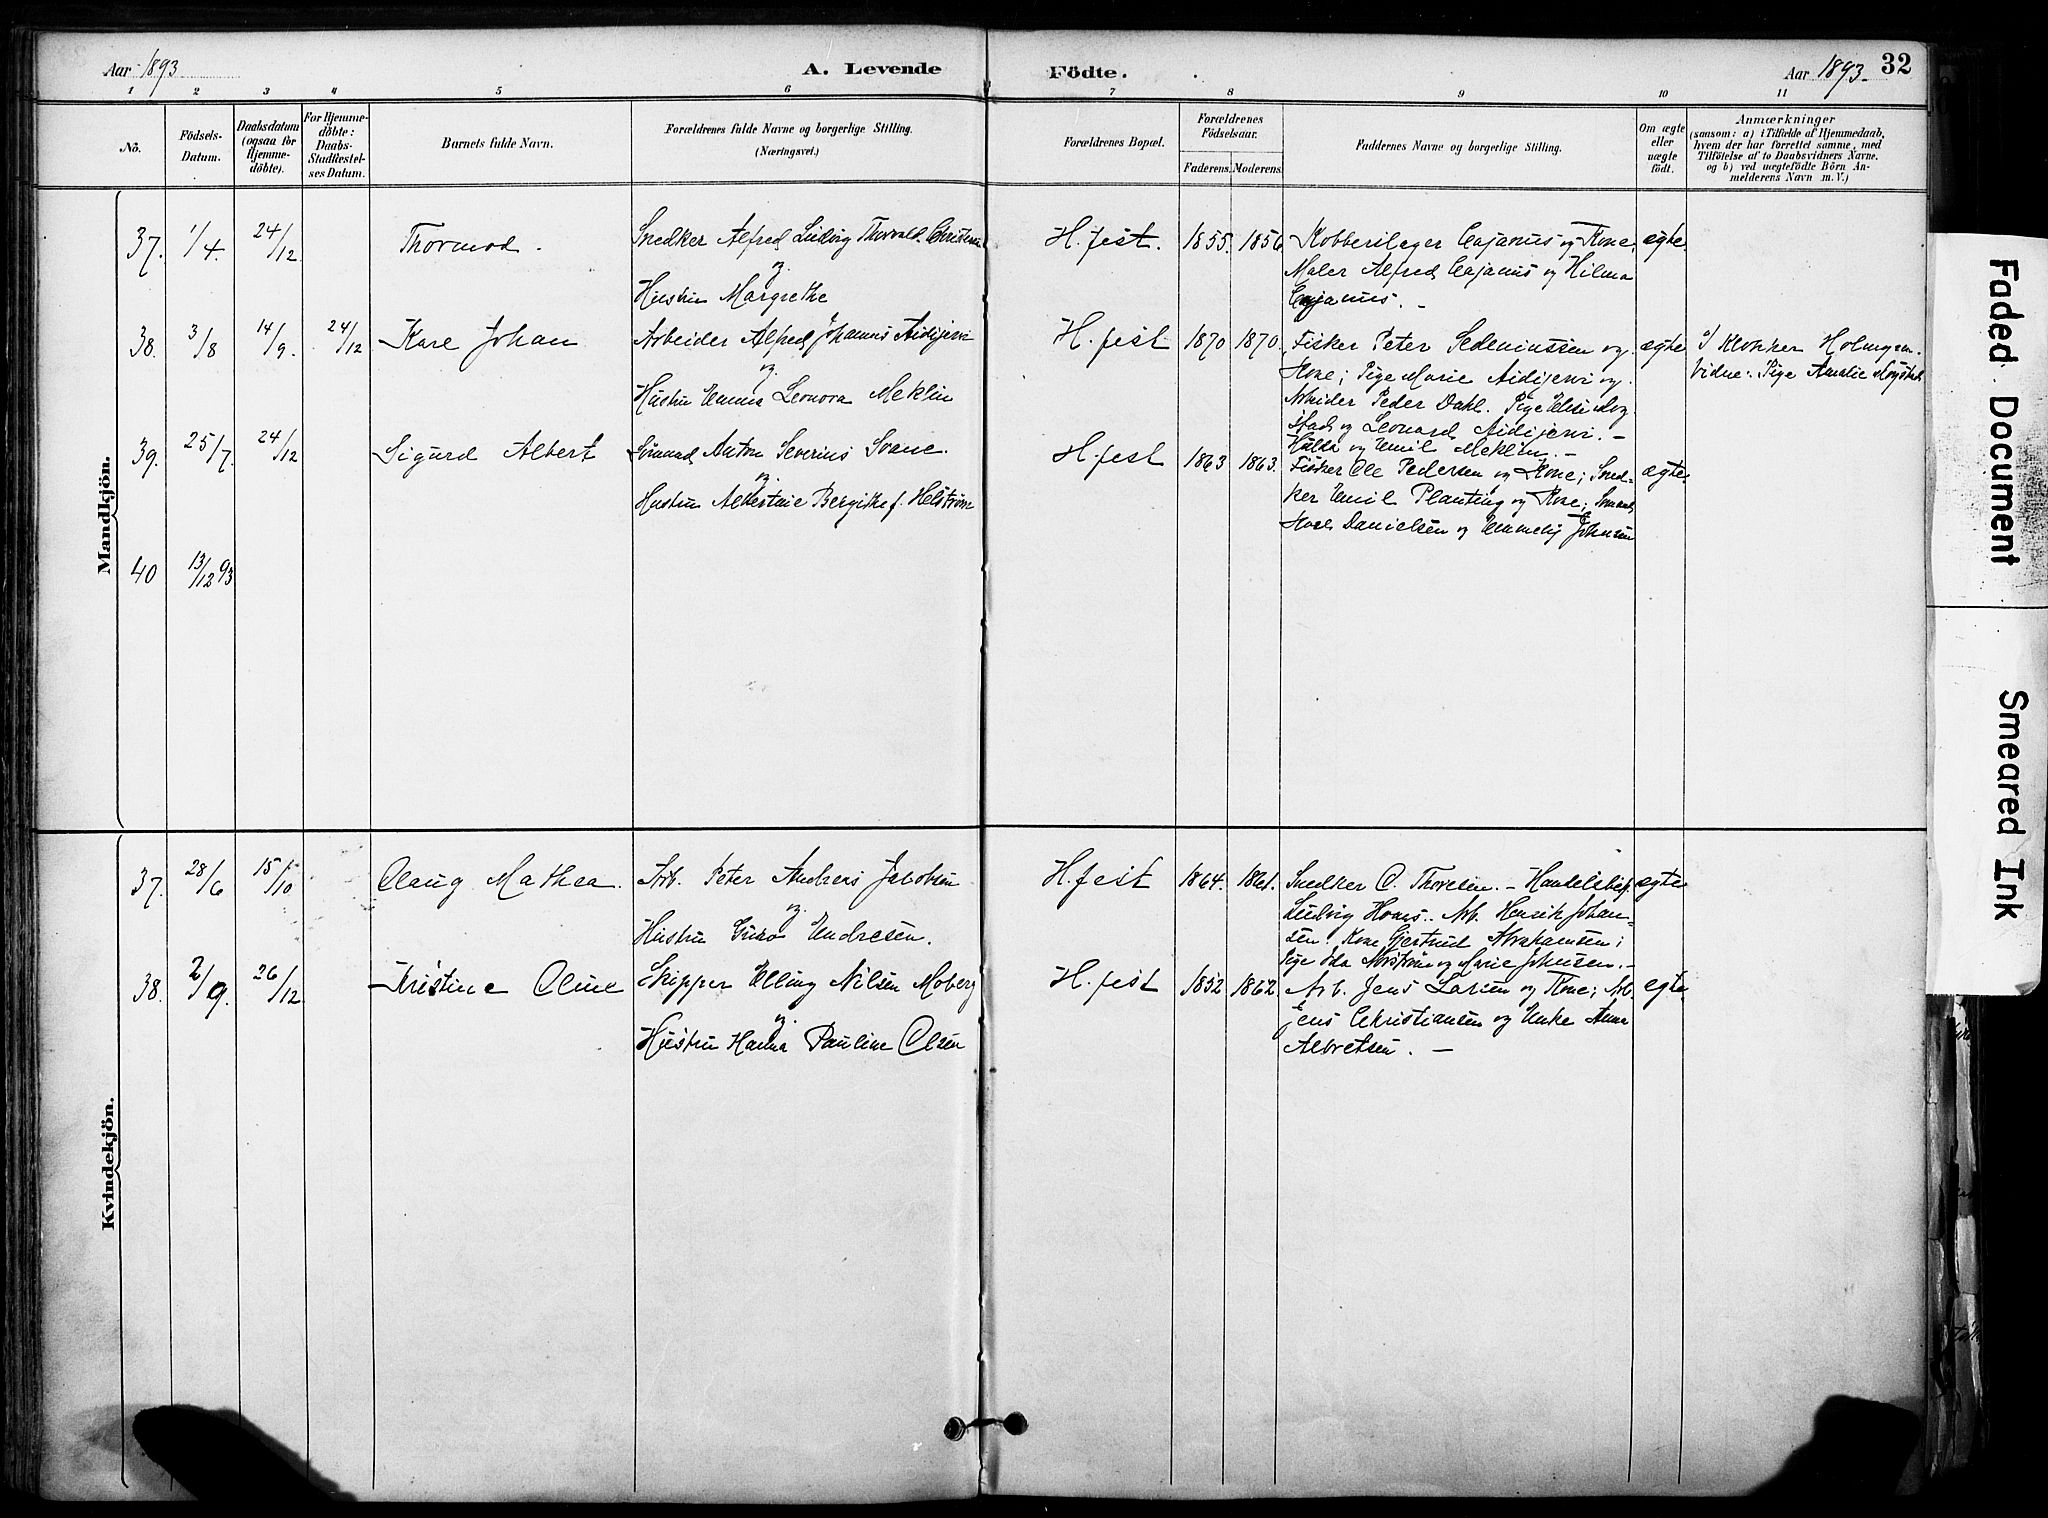 Aar 1893
A. Levende Födte.
Aar 1893. 32
1 2 3 4 5 6 7 8 9 10 11
No.
Födsels-
Datum.
Daabsdatum
(ogsaa för
Hjemme-
döbte).
For Hjemme-
döbte:
Daabs-
Stadfæstel-
ses Datum.
Barnets fulde Navn.
Forældrenes fulde Navne og borgerlige Stilling.
(Næringsvei.)
Forældrenes Bopæl.
Forældrenes
Födselsaar.
Faderens. Moderens.
Faddernes Navne og borgerlige Stilling.
Om ægte
eller
uægte
födt.
Anmærkninger
(saasom: a) i Tilfælde af Hjemmedaab,
hvem der har forrettet samme, med
Tilföielse af to Daabsvidners Navne,
og b) ved uægtefödte Börn An-
melderens Navn m. V.)
Mandkjön.
37. 1/4. 24/12 Thormod.
Snedker Alfred Ludvig Thorvald Christensen
og
Hustru Margrethe
H.fest. 1855. 1856.
Kobberslager Cajanus og Kone,
Maler Alfred Cajanus og Hilma
Cajanus. –
ægte.
38. 3/8 14/9. 24/12 Kare Johan
Arbeider Alfred Johannes Aidijervi
og
Hustru Emma Leonora Meklin
H.fest 1870 1870.
Fisker Peter Sedeniussen og
Kone; Pige Marie Aidijervi og
Arbeider Peder Dahl. Pige Elise Mog
stad og Leonard Aidijervi. –
Hulda og Emil Meklin. –
ægte
a/ Klokker Holmgren.
Vidne: Pige Amalie Mogstad
39. 25/7. 24/12 Sigurd Albert
Sömand Anton Severin Svane.
og
Hustru Albertine Bergithe f. Helström
H.fest 1863 1863.
Fisker Ole Pedersen og Kone; Sned-
ker Emil Planting og Kone; Sömand
Danielsen og Johnsen
ægte.
40 13/12 93
Kvindekjön.
37. 28/6 15/10 Olaug Mathea.
Arb. Peter Andreas Jakobsen
og
Hustru Guro Endresen.
H.fest 1864. 1861.
Snedker O. Thoresen. – Handelsbesf.
Ludvig Hoaas.. Arb. Henrik Johan-
sen. Kone Gjertrud Abrahamsen;
Pige Ida Norström og Marie Johnsen. –
ægte
38. 2/9. 26/12 Kristine Oline
Skipper Elling Nilsen Moberg
og
Hustru Hanna Pauline Olsen
H.fest 1852 1862.
Arb. Jens Larsen og Kone; Arb.
Jens Christiansen og Enke Anna
Albretsen. –
ægte
Faded Document
Smeared Ink